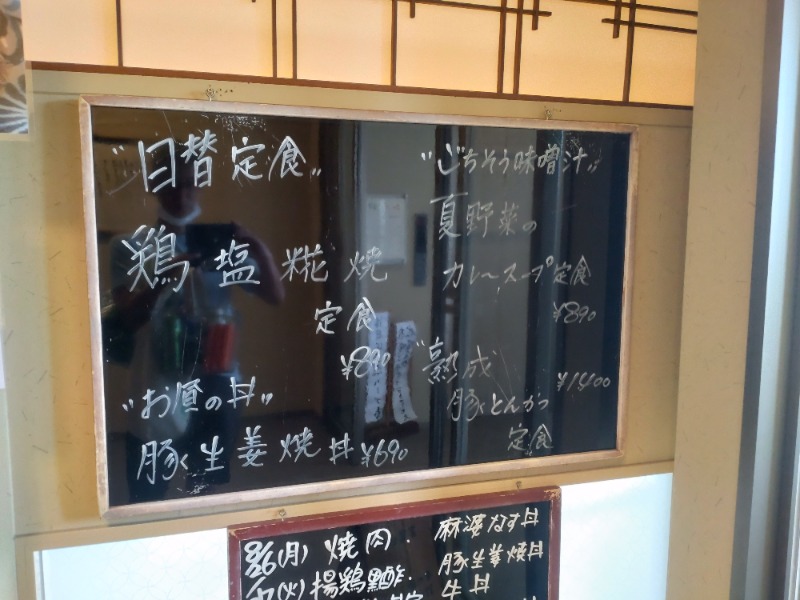 "日替定食"
鶏塩糀焼
定食
¥890
"お昼の丼"
豚生姜焼丼 ¥690
"ごちそう味噌汁"
夏野菜の
カレースープ定食
¥890
"熟成
¥1400
豚とんかつ
定食
8/6(月) 焼肉
(火) 揚鶏黒酢
麻婆なす丼
豚生姜焼丼
牛丼